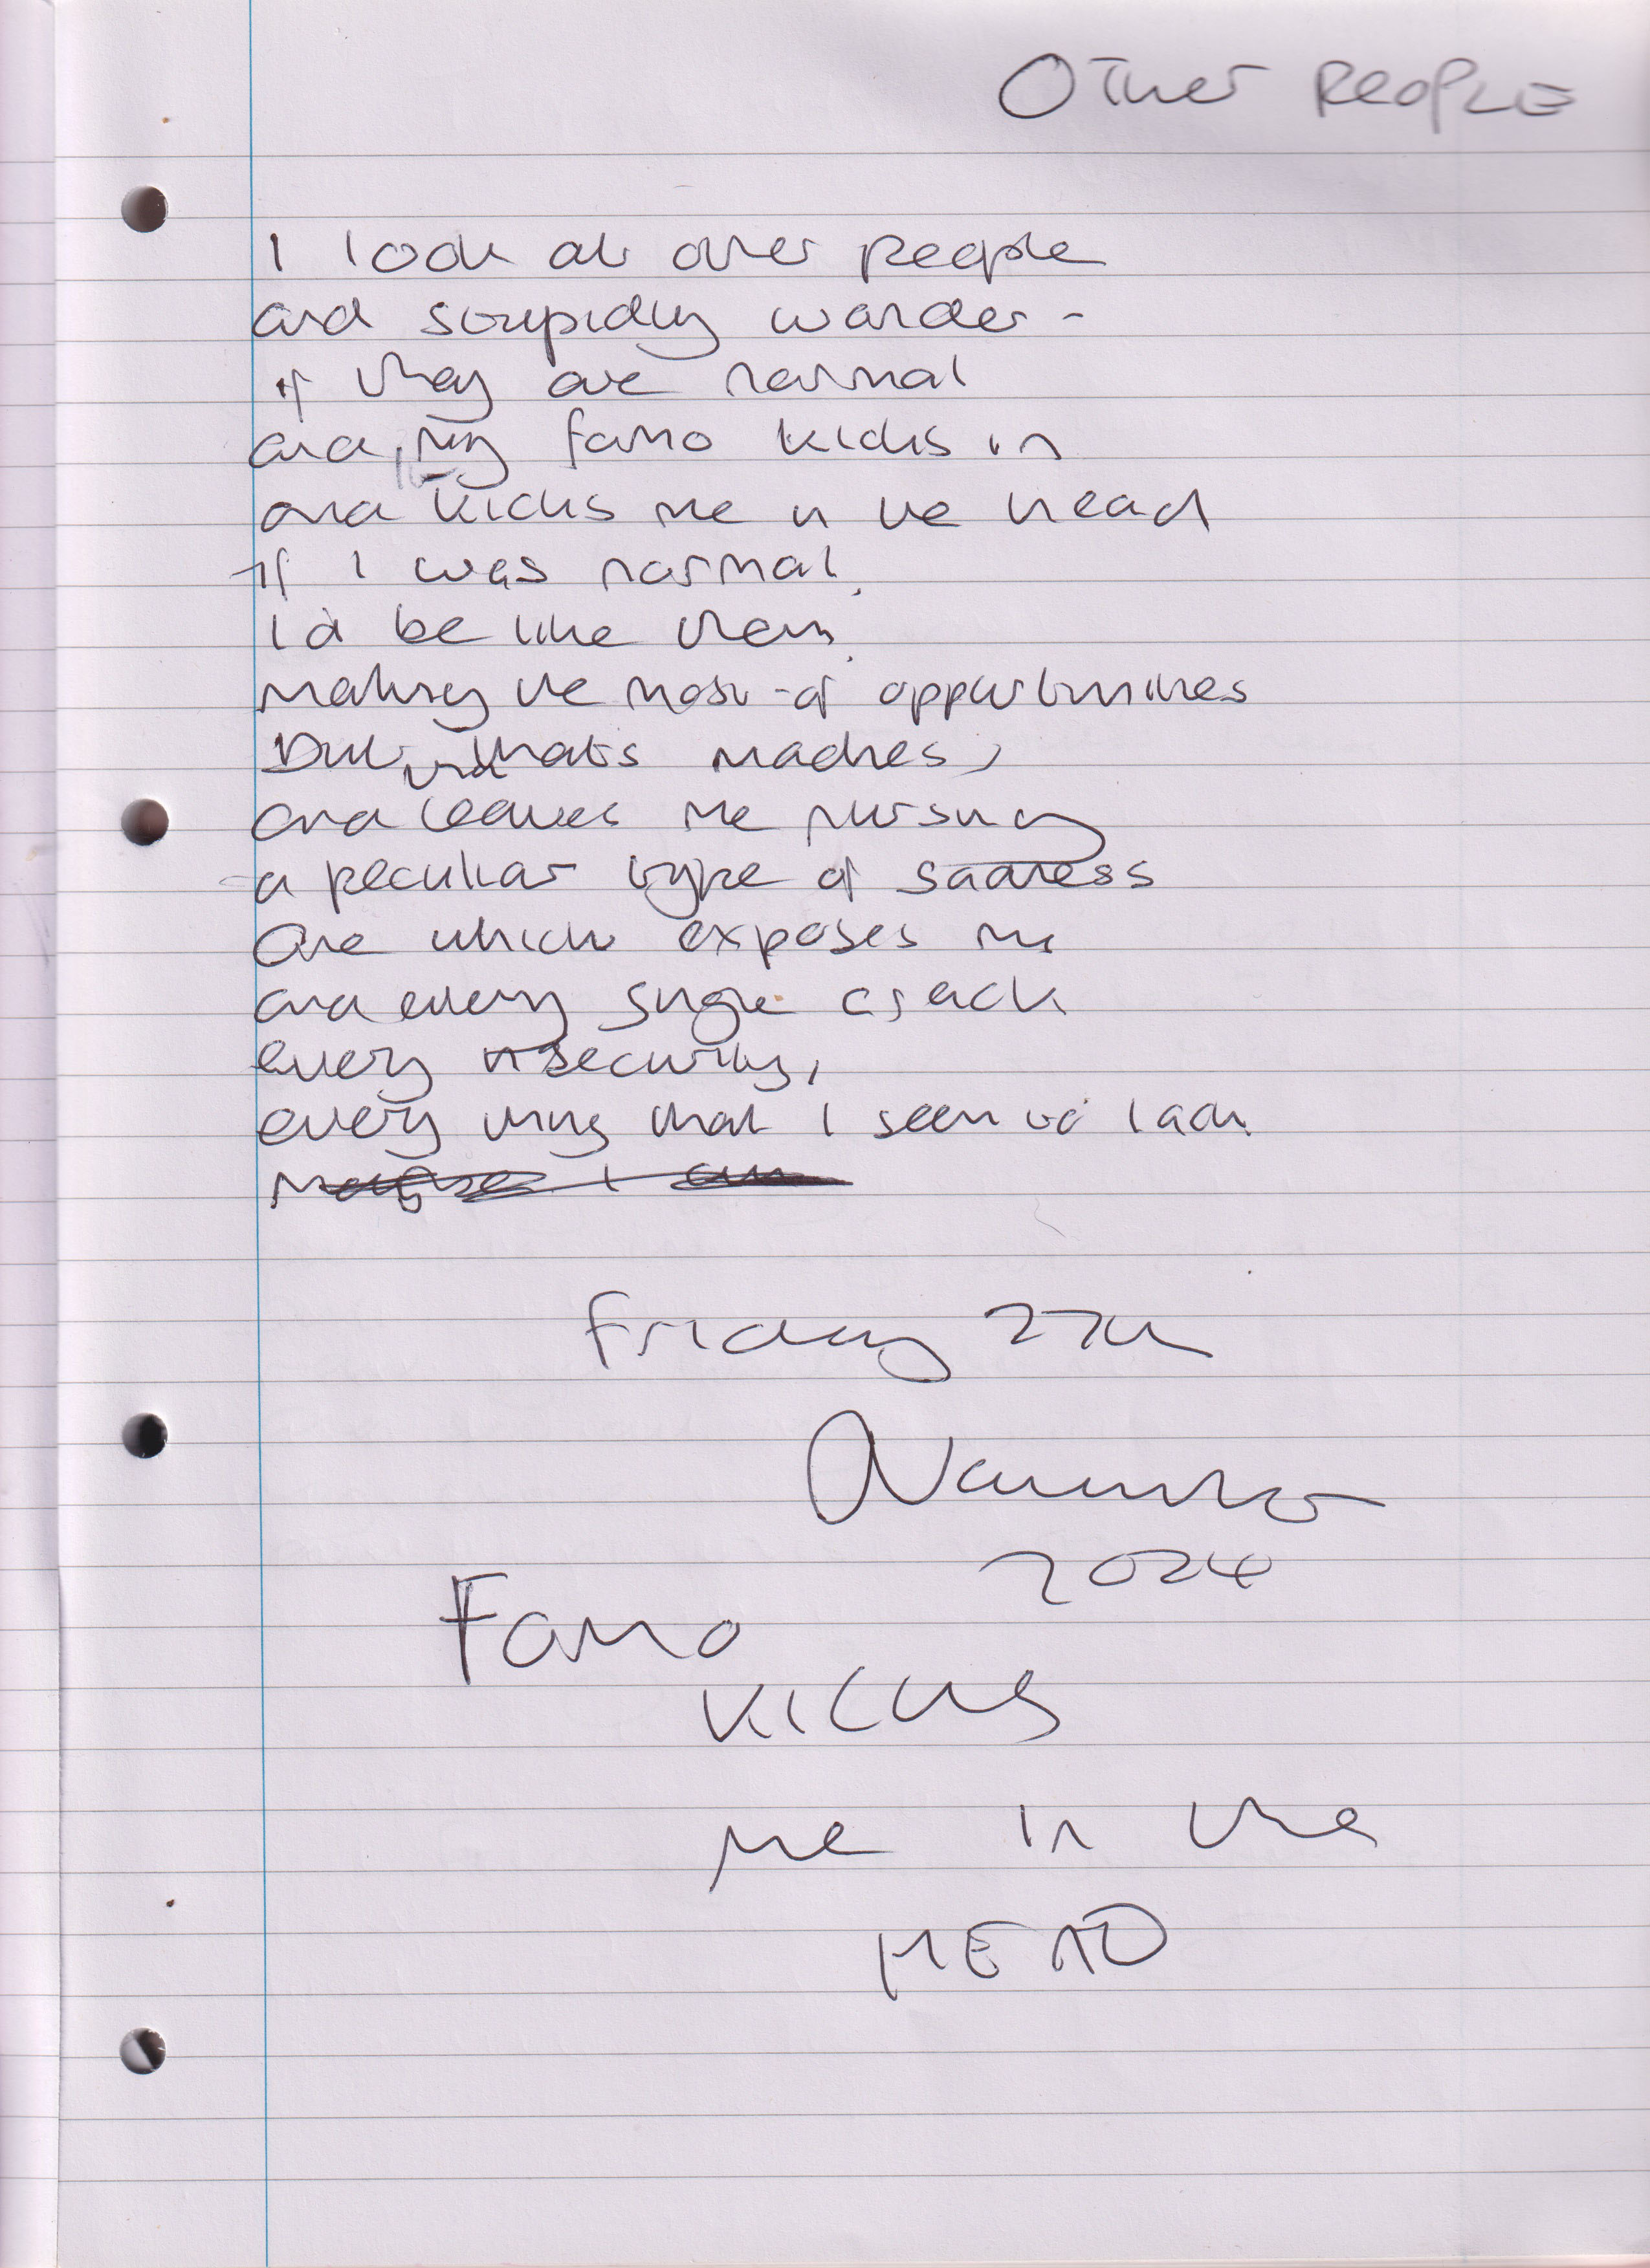 Other People
I look at other people
and stupidly wonder -
if they are normal
and my fomo kicks in
and kicks me in the head
If I was normal,
I'd be like them,
making the most of opportunities
But that's madness,
and leaves me nursing
a peculiar type of sadness
One which exposes me
and every single crack
every insecurity,
every thing that I seem to lack
Maybe I am
Friday 27th
2024
Fomo
kicks
me in the
HEAD